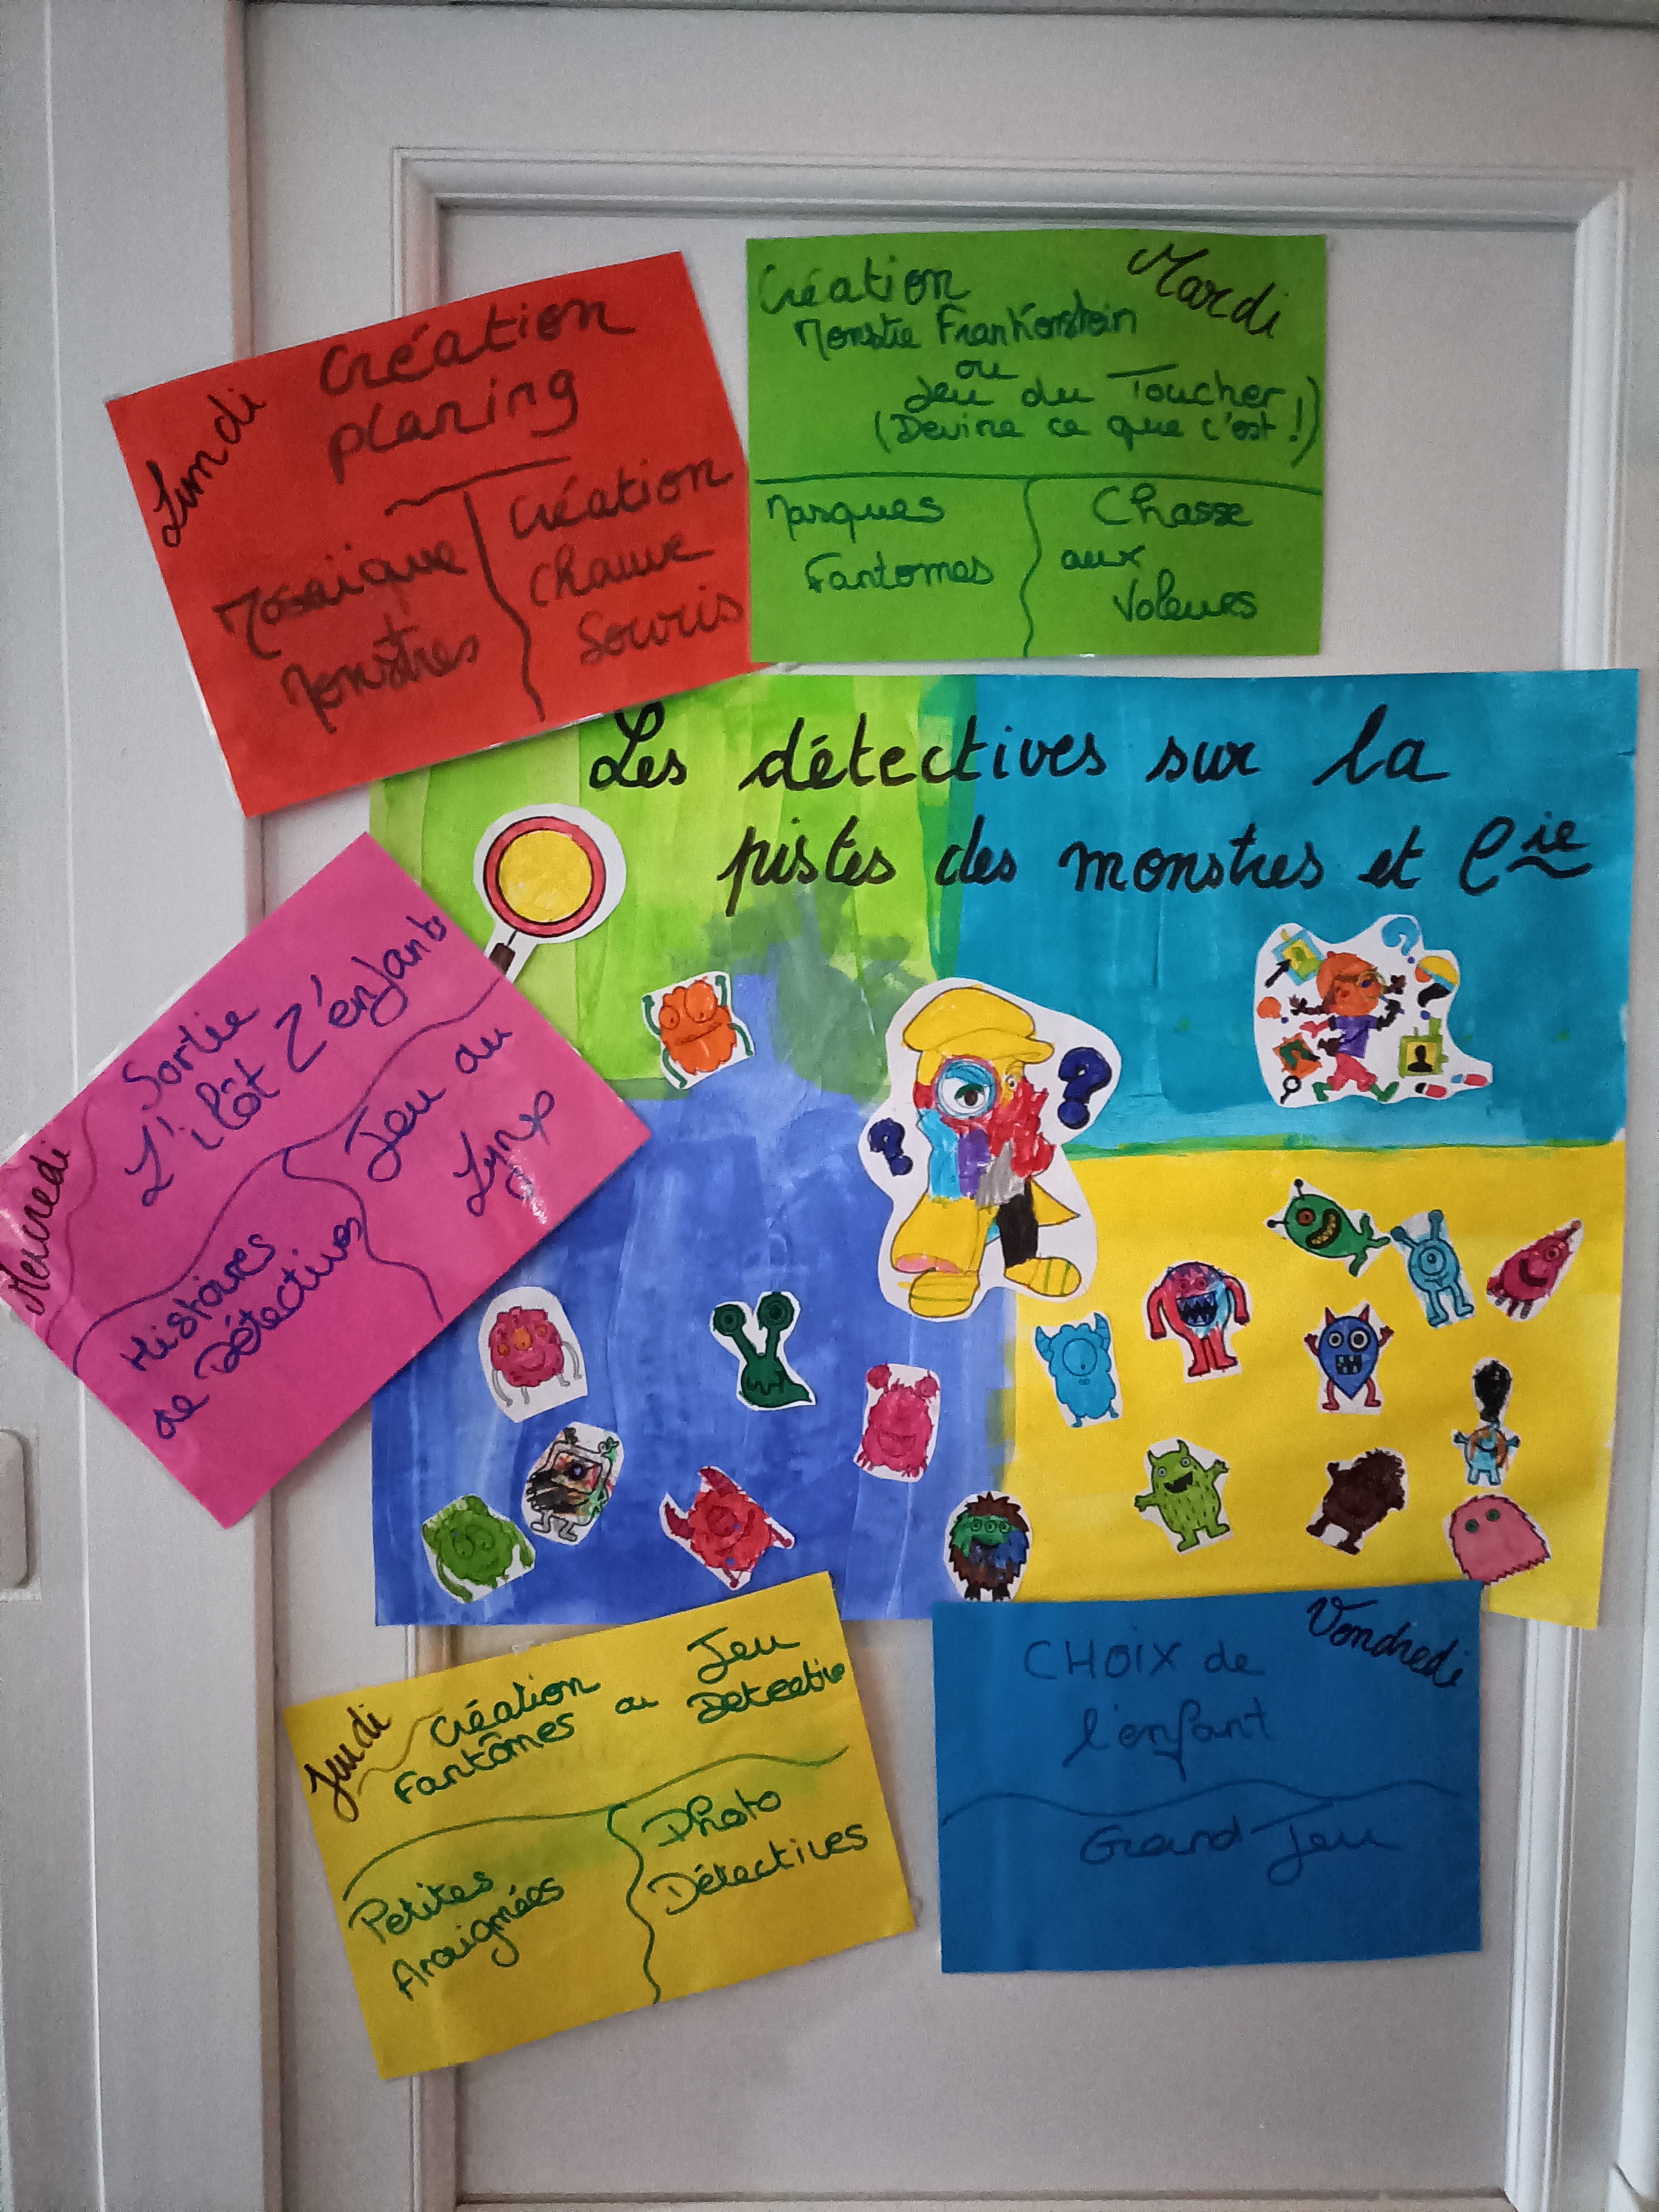 Lundi
Création
planing
Mosaïque
Monstres
Création
Chauve
Souris
Mardi
Création
Monstre Frankenstein
ou
Jeu du Toucher
(Devine ce que c'est !)
Masques
Fantomes
Chasse
aux
Voleurs
Les détectives sur la
pistes des monstres et Cie
Mercredi
Sortie
L'ilôt Z'enfants
Histoires
de Détectives
Jeu du
Lynx
Jeudi
Création
Fantômes ou
Jeu
Detective
Petites
Araignées
Photo
Détectives
Vendredi
CHOIX de
l'enfant
Grand Jeu